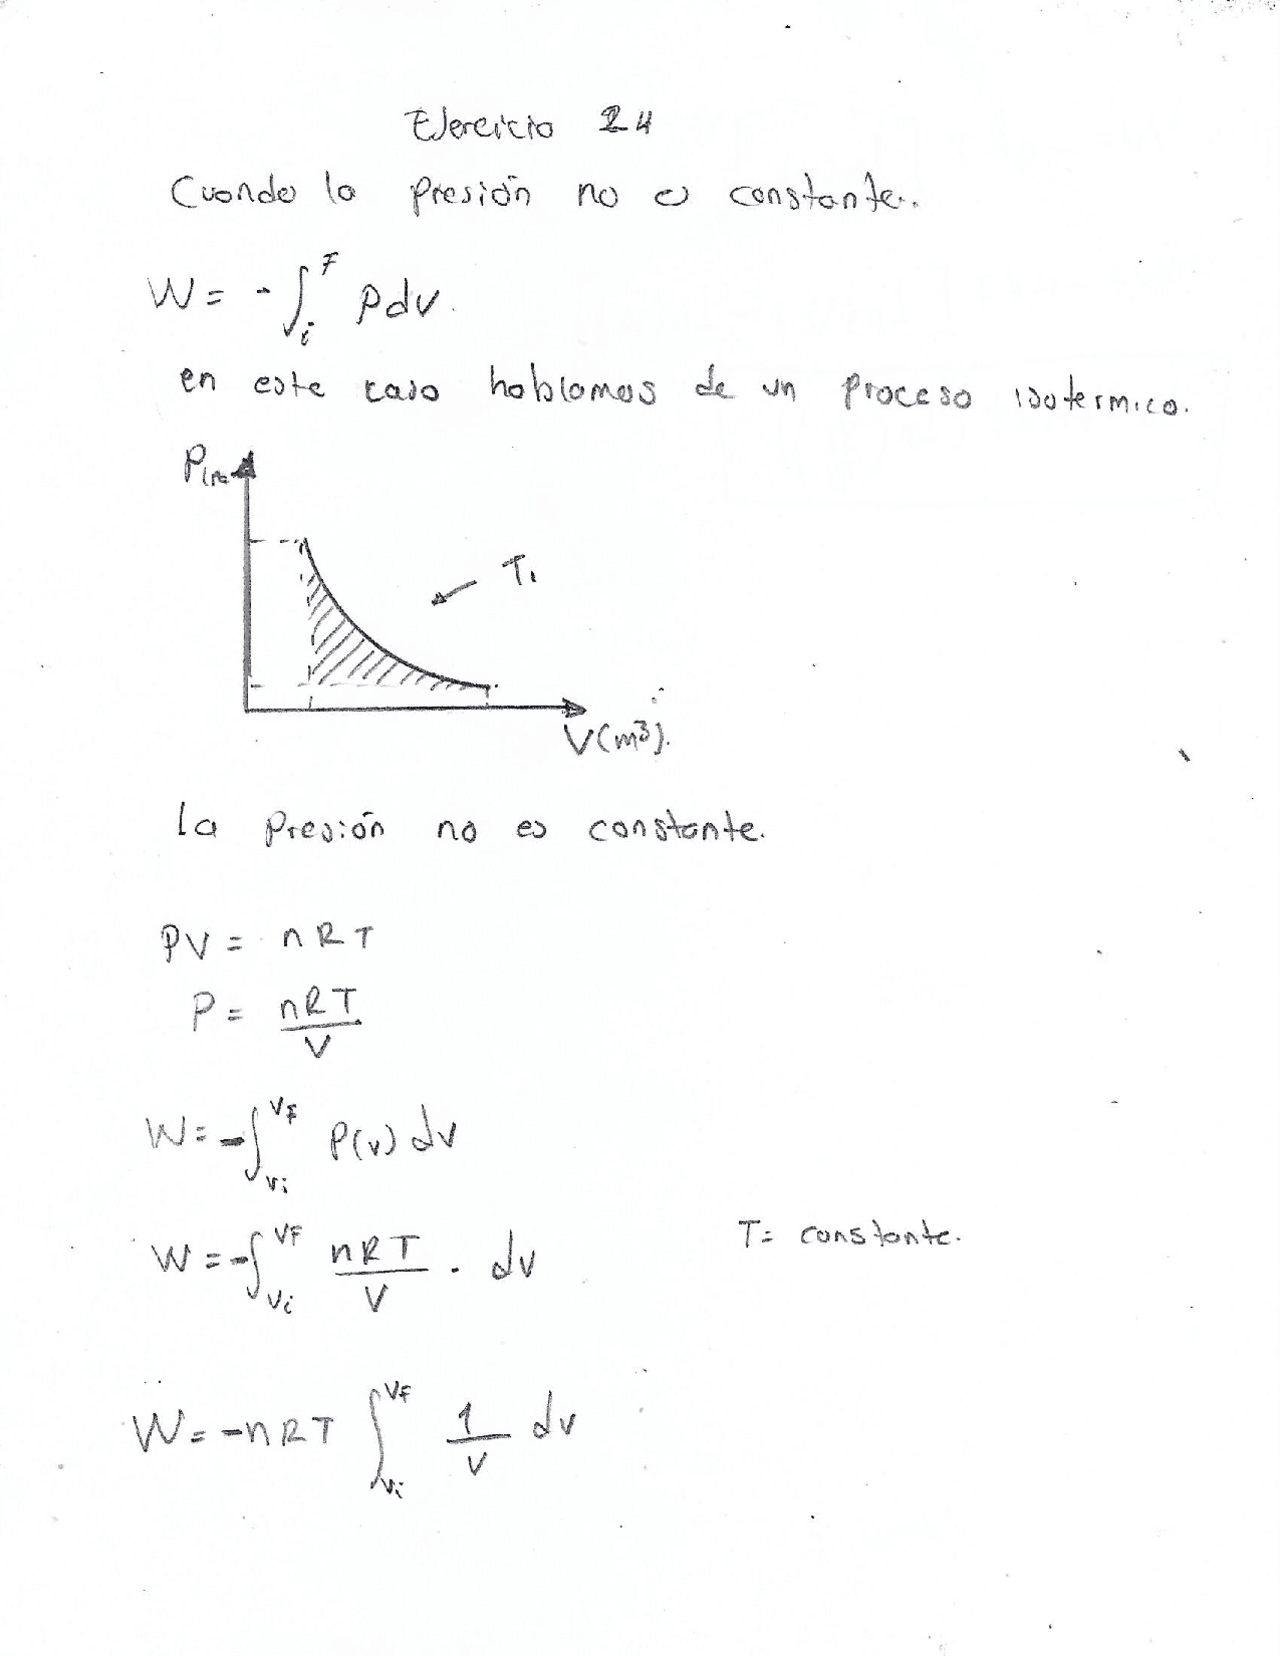 Ejercicio 24
Cuando la presión no es constante.
W = - ∫ᵢᶠ P dv.
en este caso hablamos de un proceso isotermico.
T₁
V(m³).
la presión no es constante.
PV = nRT
P = nRT/V
W = - ∫ᵥᵢⱽᶠ P(v) dv
W = - ∫ᵥᵢⱽᶠ nRT/V . dv T = constante.
W = -nRT ∫ᵥᵢⱽᶠ 1/V dv